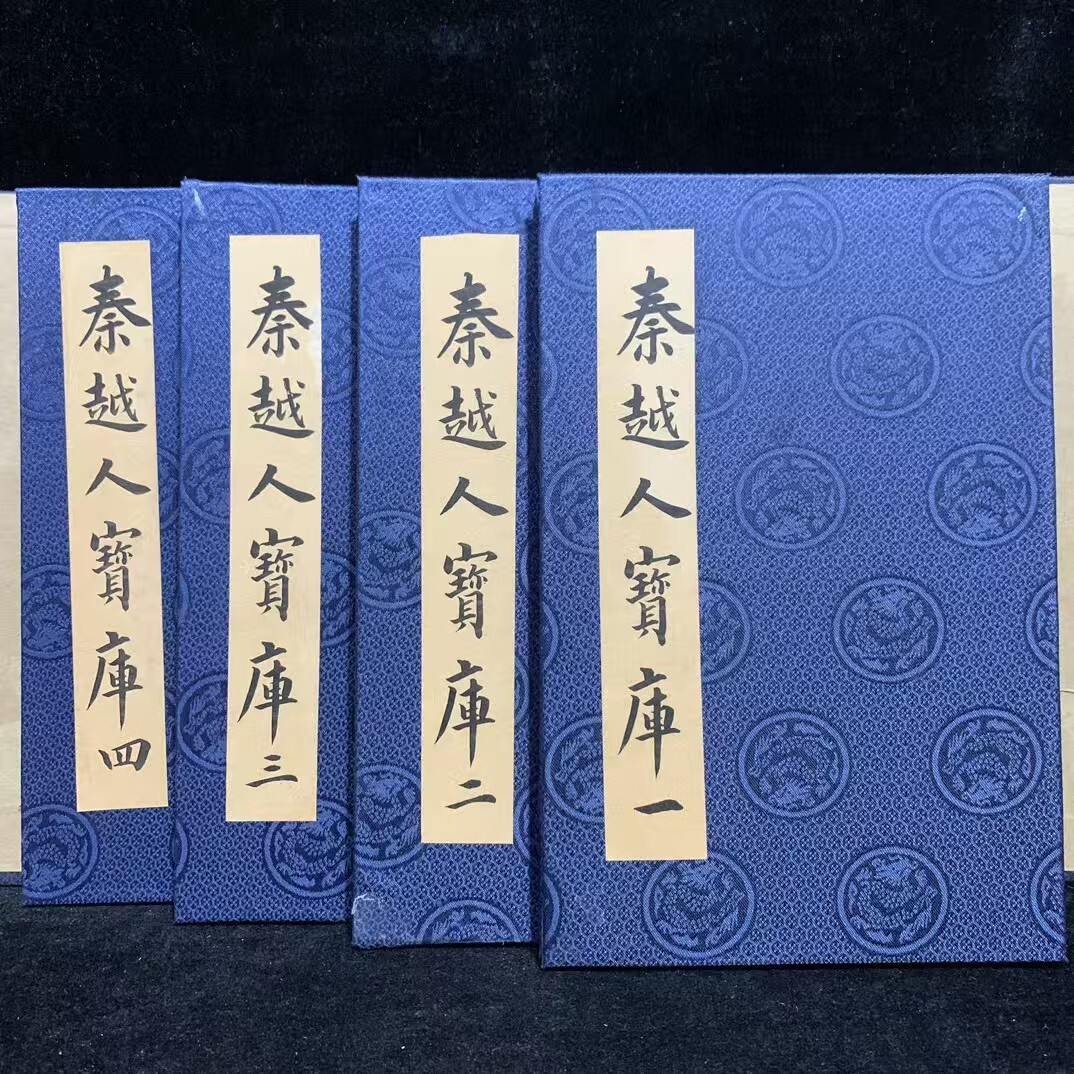 秦越人寶庫一
秦越人寶庫二
秦越人寶庫三
秦越人寶庫四